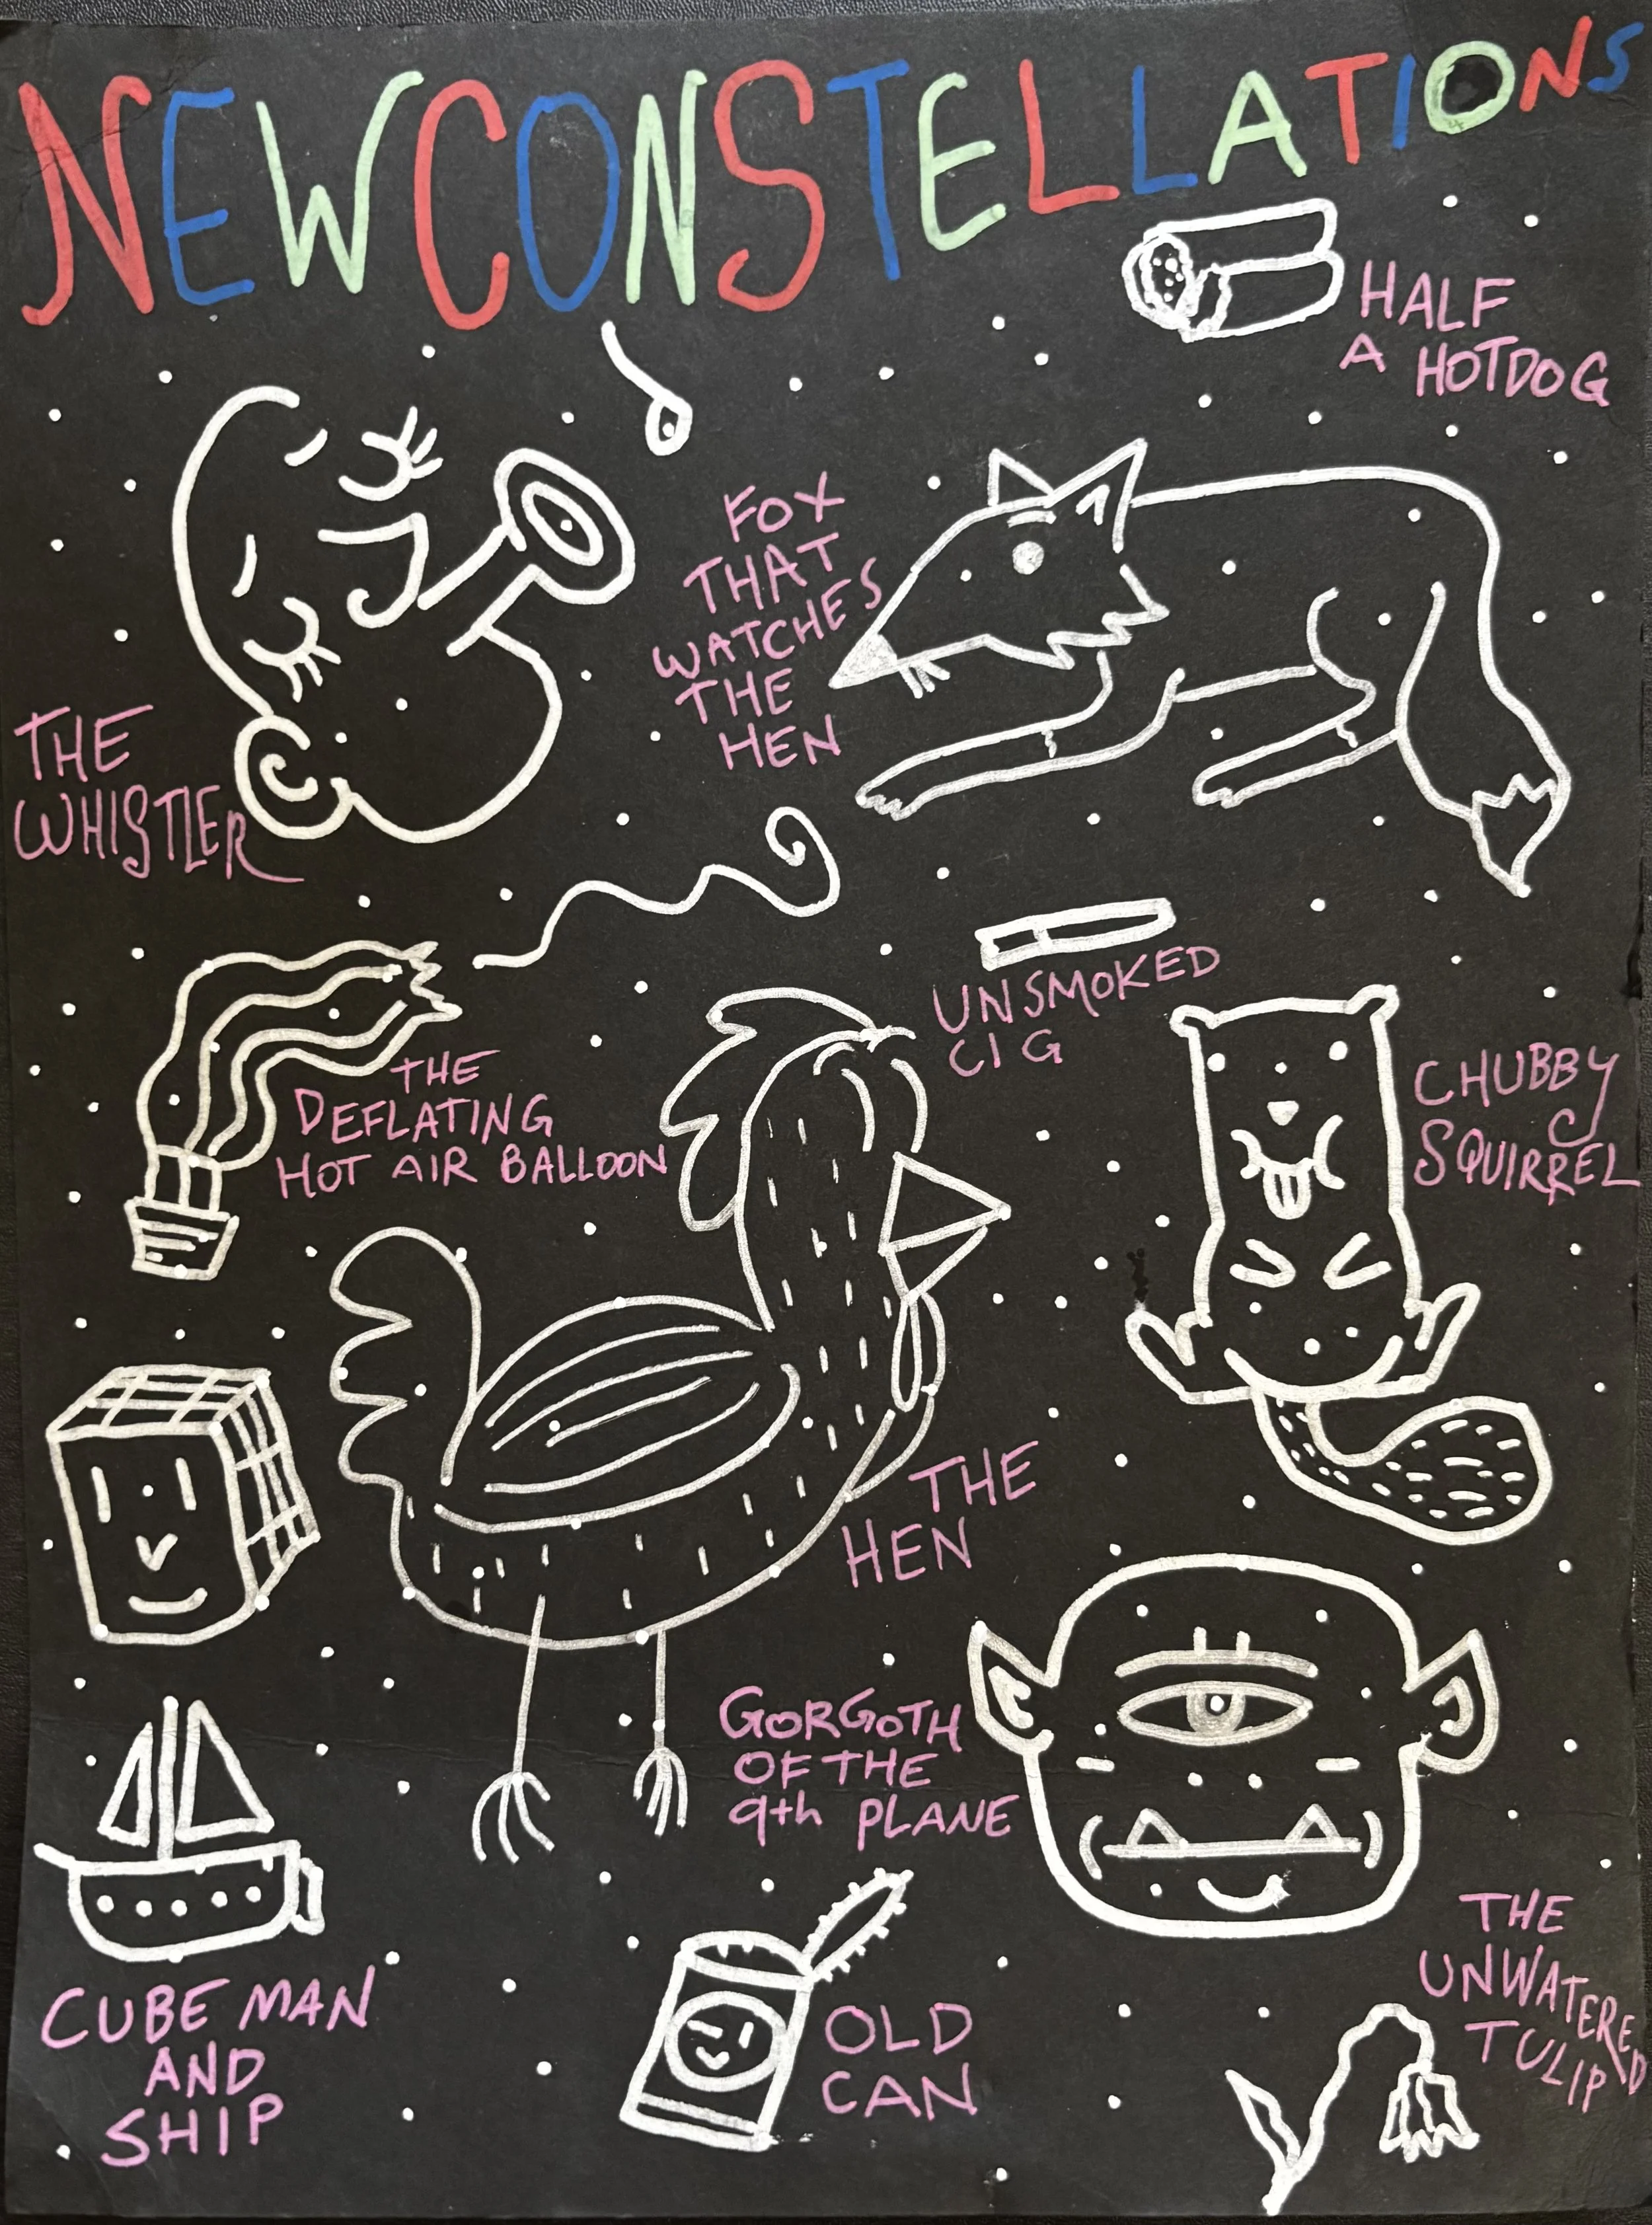 NEW CONSTELLATIONS
HALF
A HOTDOG
FOX
THAT
WATCHES
THE
HEN
THE
WHISTLER
UNSMOKED
CIG
THE
DEFLATING
HOT AIR BALLOON
CHUBBY
SQUIRREL
THE
HEN
GORGOTH
OF THE
9th PLANE
CUBE MAN
AND
SHIP
OLD
CAN
THE
UNWATERED
TULIP